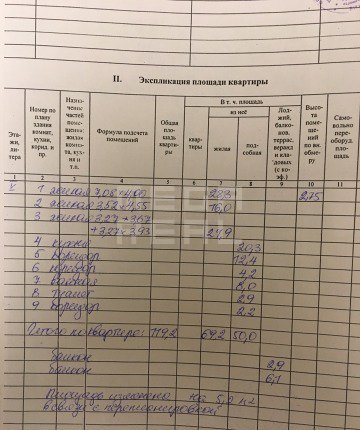 II. Экспликация площади квартиры
Этажи, литера
Номер по плану здания комнат, кухни, корид. и пр.
Назначение: частей помещения: жилая комната, кухня и т.п.
Формула подсчета помещений
Общая площадь квартиры
В т. ч. площадь
из неё
кварт-ры
жилая
подсобная
Лоджий, балконов, террас, веранд и кладовых (с коэф.)
Высота помещений по вн. обмеру
Самовольно переоборуд. площадь
1 2 3 4 5 6 7 8 9 10 11
1 жилая 7,08х4,00 28,3 2,75
2 жилая 3,52х4,55 16,0
3 жилая 3,27х3,67
+3,27х3,93 24,9
4 кухня 20,3
5 коридор 12,4
6 коридор 4,2
7 ванная 8,0
8 туалет 2,9
9 коридор 2,2
Итого по квартире: 119,2 69,2 50,0
балкон 2,9
балкон 6,1
Площадь изменена на 5,0 м2
в связи с перепланировкой